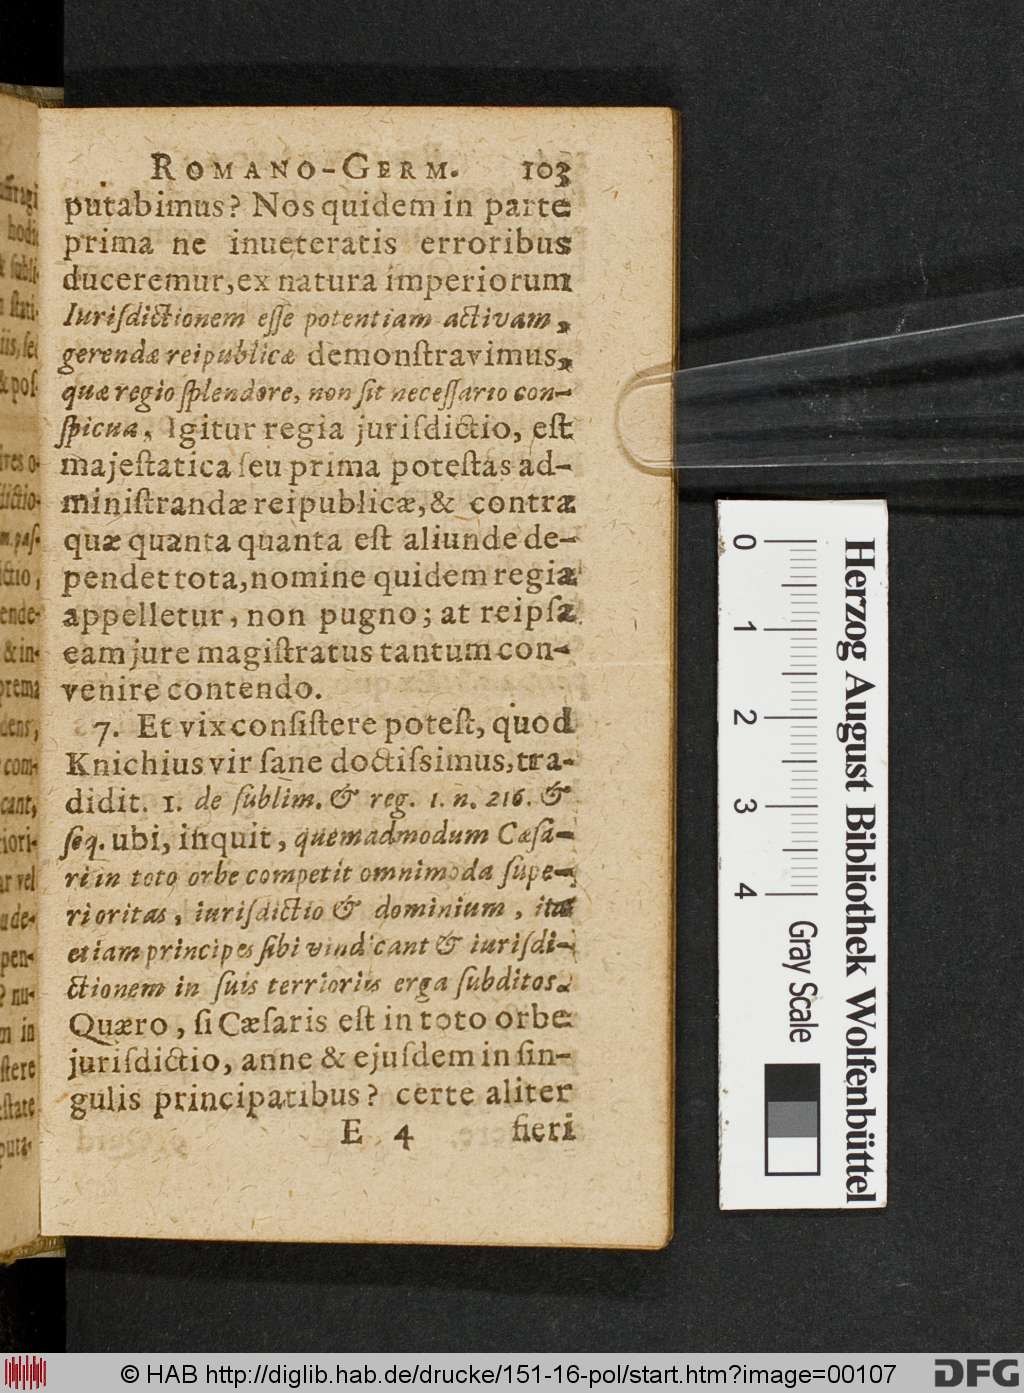 ROMANO-GERM. 103
putabimus? Nos quidem in parte
prima ne inueteratis erroribus
duceremur, ex natura imperiorum
Iuriſdictionem eſſe potentiam activam,
gerendæ reipublicæ demonſtravimus,
quæ regio ſplendore, non ſit neceſſario con-
ſpicua, Igitur regia juriſdictio, eſt
majeſtatica ſeu prima poteſtas ad-
miniſtrandæ reipublicæ, & contra
quæ quanta quanta eſt aliunde de-
pendet tota, nomine quidem regia
appelletur, non pugno; at reipſa
eam jure magiſtratus tantum con-
venire contendo.
7. Et vix conſiſtere poteſt, quod
Knichius vir ſane doctiſsimus, tra-
didit. 1. de ſublim. & reg. 1. n. 216. &
ſeq. ubi, inquit, quemadmodum Cæſa-
ri in toto orbe competit omnimoda ſupe-
rioritas, iuriſdictio & dominium, ita
etiam principes ſibi vindicant & iuriſdi-
ctionem in ſuis terrioriis erga ſubditos.
Quæro, ſi Cæſaris eſt in toto orbe
juriſdictio, anne & ejuſdem in ſin-
gulis principatibus? certe aliter
E 4 fieri
0 1 2 3 4
Herzog August Bibliothek Wolfenbüttel
Gray Scale
© HAB http://diglib.hab.de/drucke/151-16-pol/start.htm?image=00107
DFG